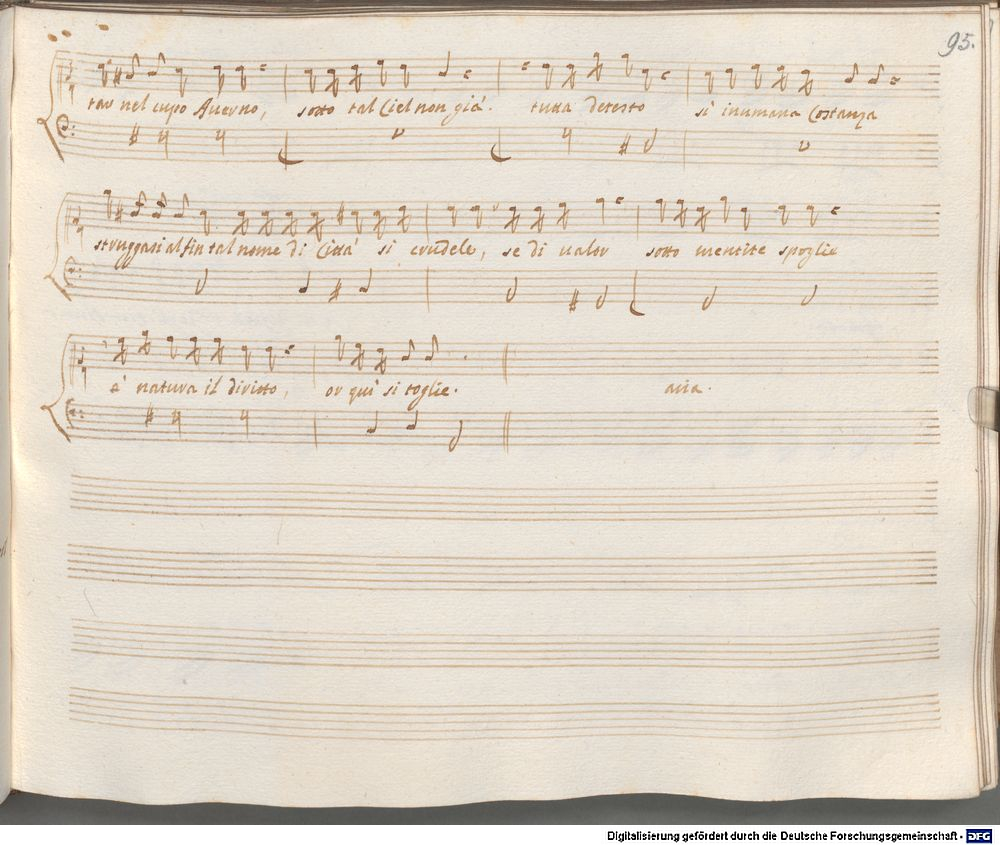 95.
rar nel cupo Auerno, sotto tal Ciel non già. tutta detesto sì inumana Costanza
struggasi al fin tal nome di Città si crudele, se di ualor sotto mentite spoglie
è natura il diritto, or quì si toglie.
aria.
Digitalisierung gefördert durch die Deutsche Forschungsgemeinschaft - DFG